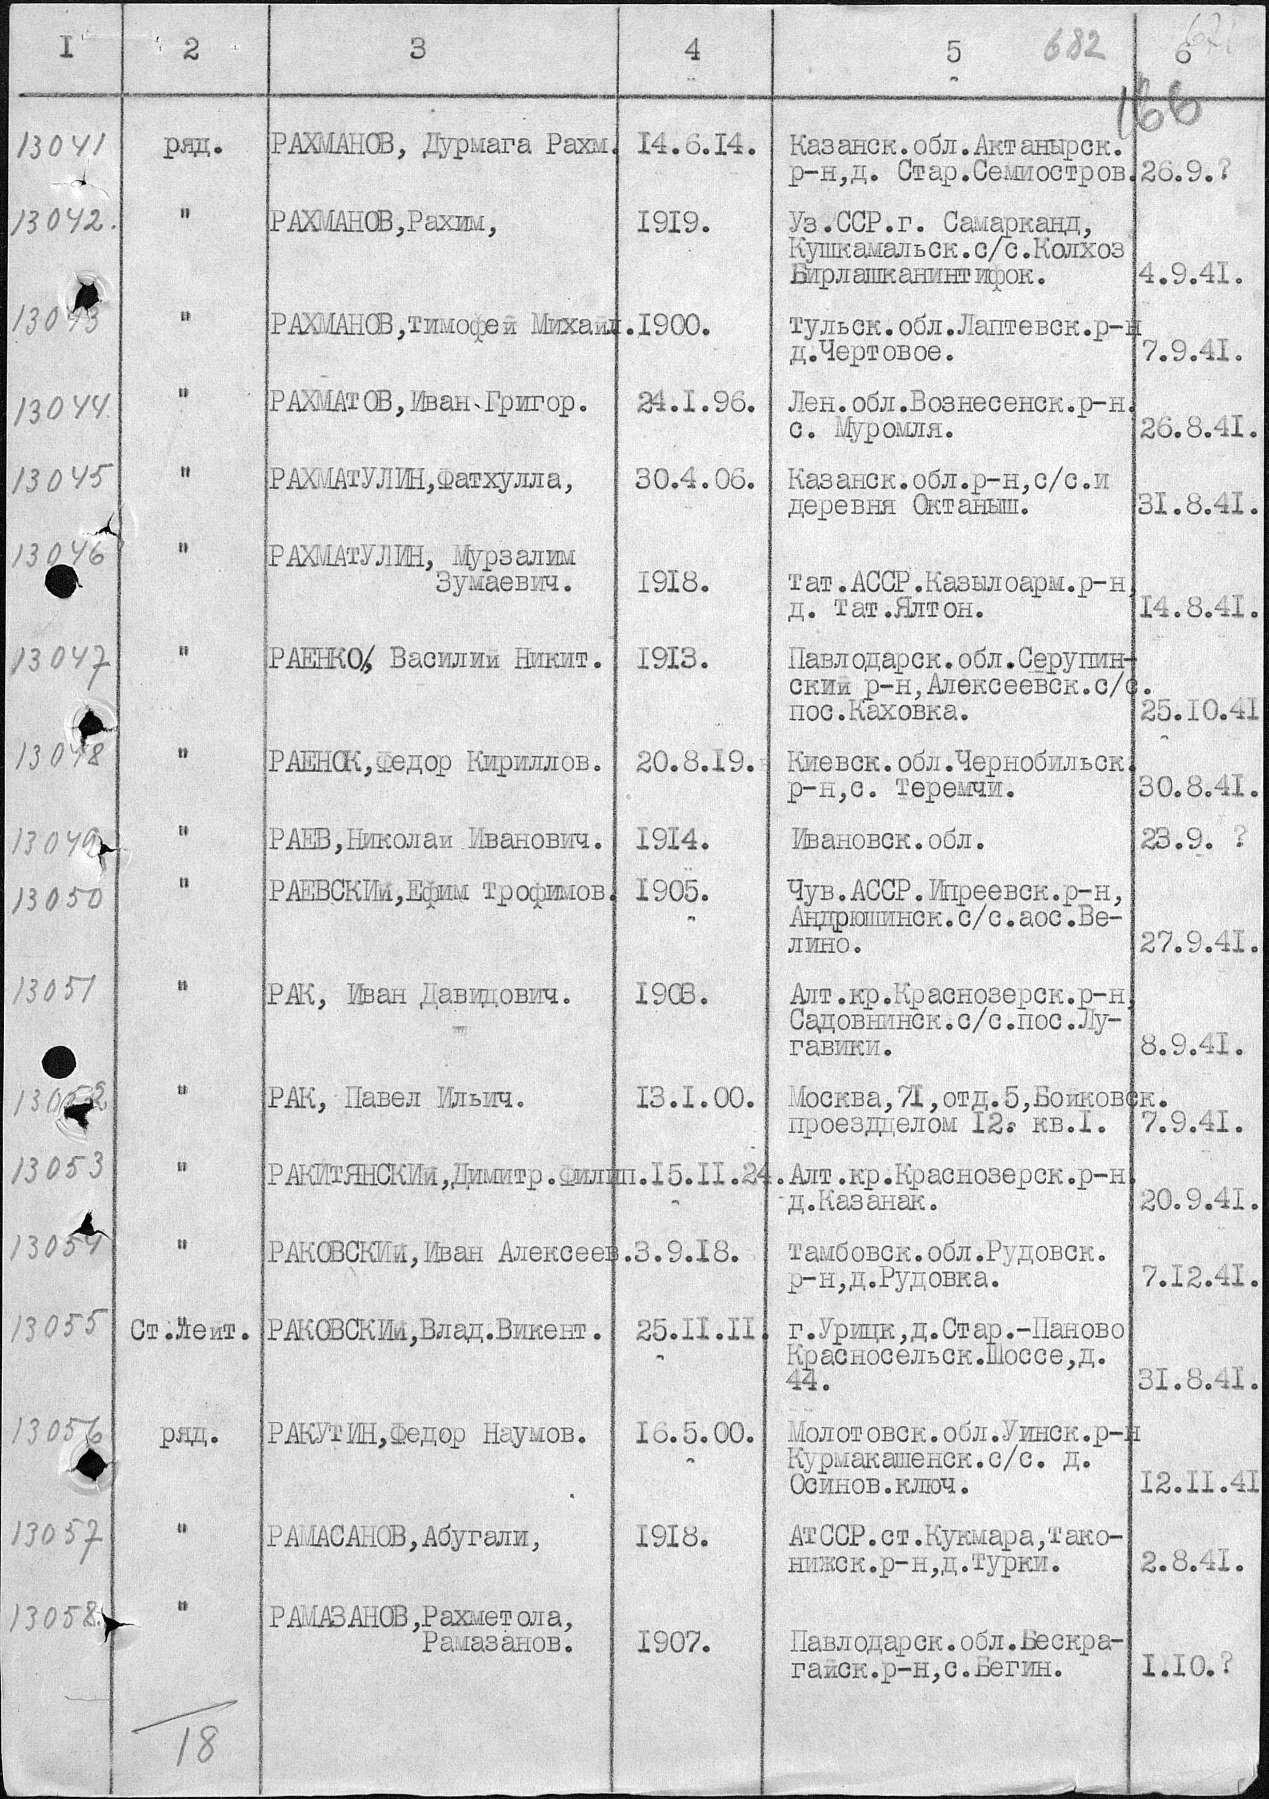 I 2 3 4 5 682 6
166
13041 ряд. РАХМАНОВ, Дурмага Рахм. I4.6.I4. Казанск.обл.Актанырск.
р-н,д. Стар.Семиостров. 26.9.?
13042. " РАХМАНОВ,Рахим, I9I9. Уз.ССР.г. Самарканд,
Кушкамальск.с/с.Колхоз
Бирлашканинтифок. 4.9.4I.
13043 " РАХМАНОВ,Тимофей Михайл. I900. Тульск.обл.Лаптевск.р-н
д.Чертовое. 7.9.4I.
13044. " РАХМАТОВ,Иван Григор. 24.I.96. Лен.обл.Вознесенск.р-н.
с. Муромля. 26.8.4I.
13045 " РАХМАТУЛИН,Фатхулла, 30.4.06. Казанск.обл.р-н,с/с.и
деревня Октаныш. 3I.8.4I.
13046 " РАХМАТУЛИН, Мурзалим
Зумаевич. I9I8. Тат.АССР.Казылоарм.р-н,
д. Тат.Ялтон. I4.8.4I.
13047 " РАЕНКО, Василий Никит. I9I3. Павлодарск.обл.Серупин-
ский р-н,Алексеевск.с/с.
пос.Каховка. 25.I0.4I
13048 " РАЕНОК,Федор Кириллов. 20.8.I9. Киевск.обл.Чернобильск.
р-н,с. Теремчи. 30.8.4I.
13049 " РАЕВ,Николаи Иванович. I9I4. Ивановск.обл. 23.9. ?
13050 " РАЕВСКИй,Ефим Трофимов. I905. Чув.АССР.Ипреевск.р-н,
Андрюшинск.с/с.аос.Ве-
лино. 27.9.4I.
13051 " РАК, Иван Давидович. I903. Алт.кр.Краснозерск.р-н,
Садовнинск.с/с.пос.Лу-
гавики. 8.9.4I.
13052 " РАК, Павел Ильич. I3.I.00. Москва,7I,отд.5,Боиковск.
проездделом I2. кв.I. 7.9.4I.
13053 " РАКИТЯНСКИй,Димитр.Филип. I5.II.24. Алт.кр.Краснозерск.р-н.
д.Казанак. 20.9.4I.
13054 " РАКОВСКИй,Иван Алексеев. 3.9.I8. Тамбовск.обл.Рудовск.
р-н,д.Рудовка. 7.I2.4I.
13055 Ст.Леит. РАКОВСКИй,Влад.Викент. 25.II.II. г.Урицк,д.Стар.-Паново
Красносельск.Шоссе,д.
44. 3I.8.4I.
13056 ряд. РАКУТИН,Федор Наумов. I6.5.00. Молотовск.обл.Уинск.р-н
Курмакашенск.с/с. д.
Осинов.ключ. I2.II.4I
13057 " РАМАСАНОВ,Абугали, I9I8. АТССР.ст.Кукмара,Тако-
нижск.р-н,д.Турки. 2.8.4I.
13058. " РАМАЗАНОВ,Рахметола,
Рамазанов. I907. Павлодарск.обл.Бескра-
гайск.р-н,с.Бегин. I.I0.?
18